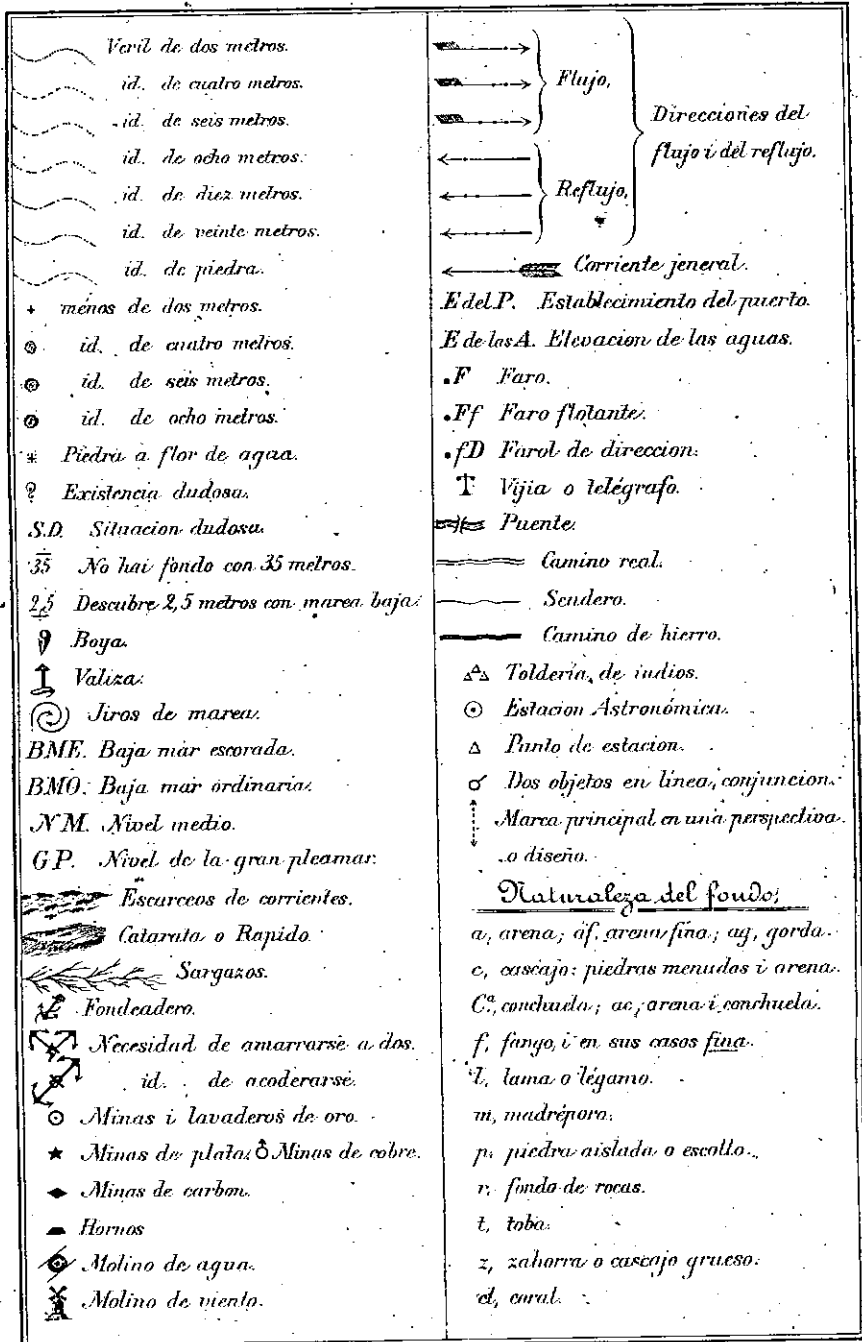 Veril de dos metros.
id. de cuatro metros.
id. de seis metros.
id. de ocho metros.
id. de diez metros.
id. de veinte metros.
id. de piedra.
ménos de dos metros.
id. de cuatro metros.
id. de seis metros.
id. de ocho metros.
Piedra a flor de agua.
? Existencia dudosa.
S.D. Situacion dudosa.
35 No hai fondo con 35 metros.
2,5 Descubre 2,5 metros con marea baja.
Boya.
Valiza.
Jiros de marea.
BME. Baja mar escorada.
BMO. Baja mar ordinaria.
NM. Nivel medio.
GP. Nivel de la gran pleamar.
Escarceos de corrientes.
Catarata o Rapido.
Sargazos.
Fondeadero.
Necesidad de amarrarse a dos.
id. de acoderarse.
Minas i lavaderos de oro.
Minas de plata. Minas de cobre.
Minas de carbon.
Hornos
Molino de agua.
Molino de viento.
Flujo,
Reflujo,
Direcciones del
flujo i del reflujo.
Corriente jeneral.
E del P. Establecimiento del puerto.
E de las A. Elevacion de las aguas.
.F Faro.
.Ff Faro flotante.
.fD Farol de direccion.
Vijia o telégrafo.
Puente.
Camino real.
Sendero.
Camino de hierro.
Toldería de indios.
Estacion Astronómica.
Punto de estacion.
Dos objetos en linea, conjuncion.
Marca principal en una perspectiva
o diseño.
Naturaleza del fondo;
a, arena; af, arena fina; ag, gorda.
c, cascajo: piedras menudas i arena.
Cª, conchuela; ac, arena i conchuela.
f, fango, i en sus casos fina.
l, lama o légamo.
m, madrépora.
p. piedra aislada o escollo.
r. fondo de rocas.
t, toba.
z, zahorra o cascajo grueso.
cl, coral.